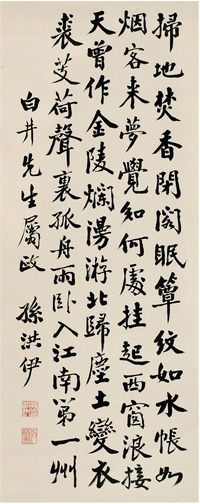 掃地焚香閉閣眠簟紋如水帳如
烟客來夢覺知何處挂起西窗浪接
天曾作金陵爛漫游北歸塵土變衣
裘芰荷聲裏孤舟雨臥入江南第一州
白井先生屬政 孫洪伊